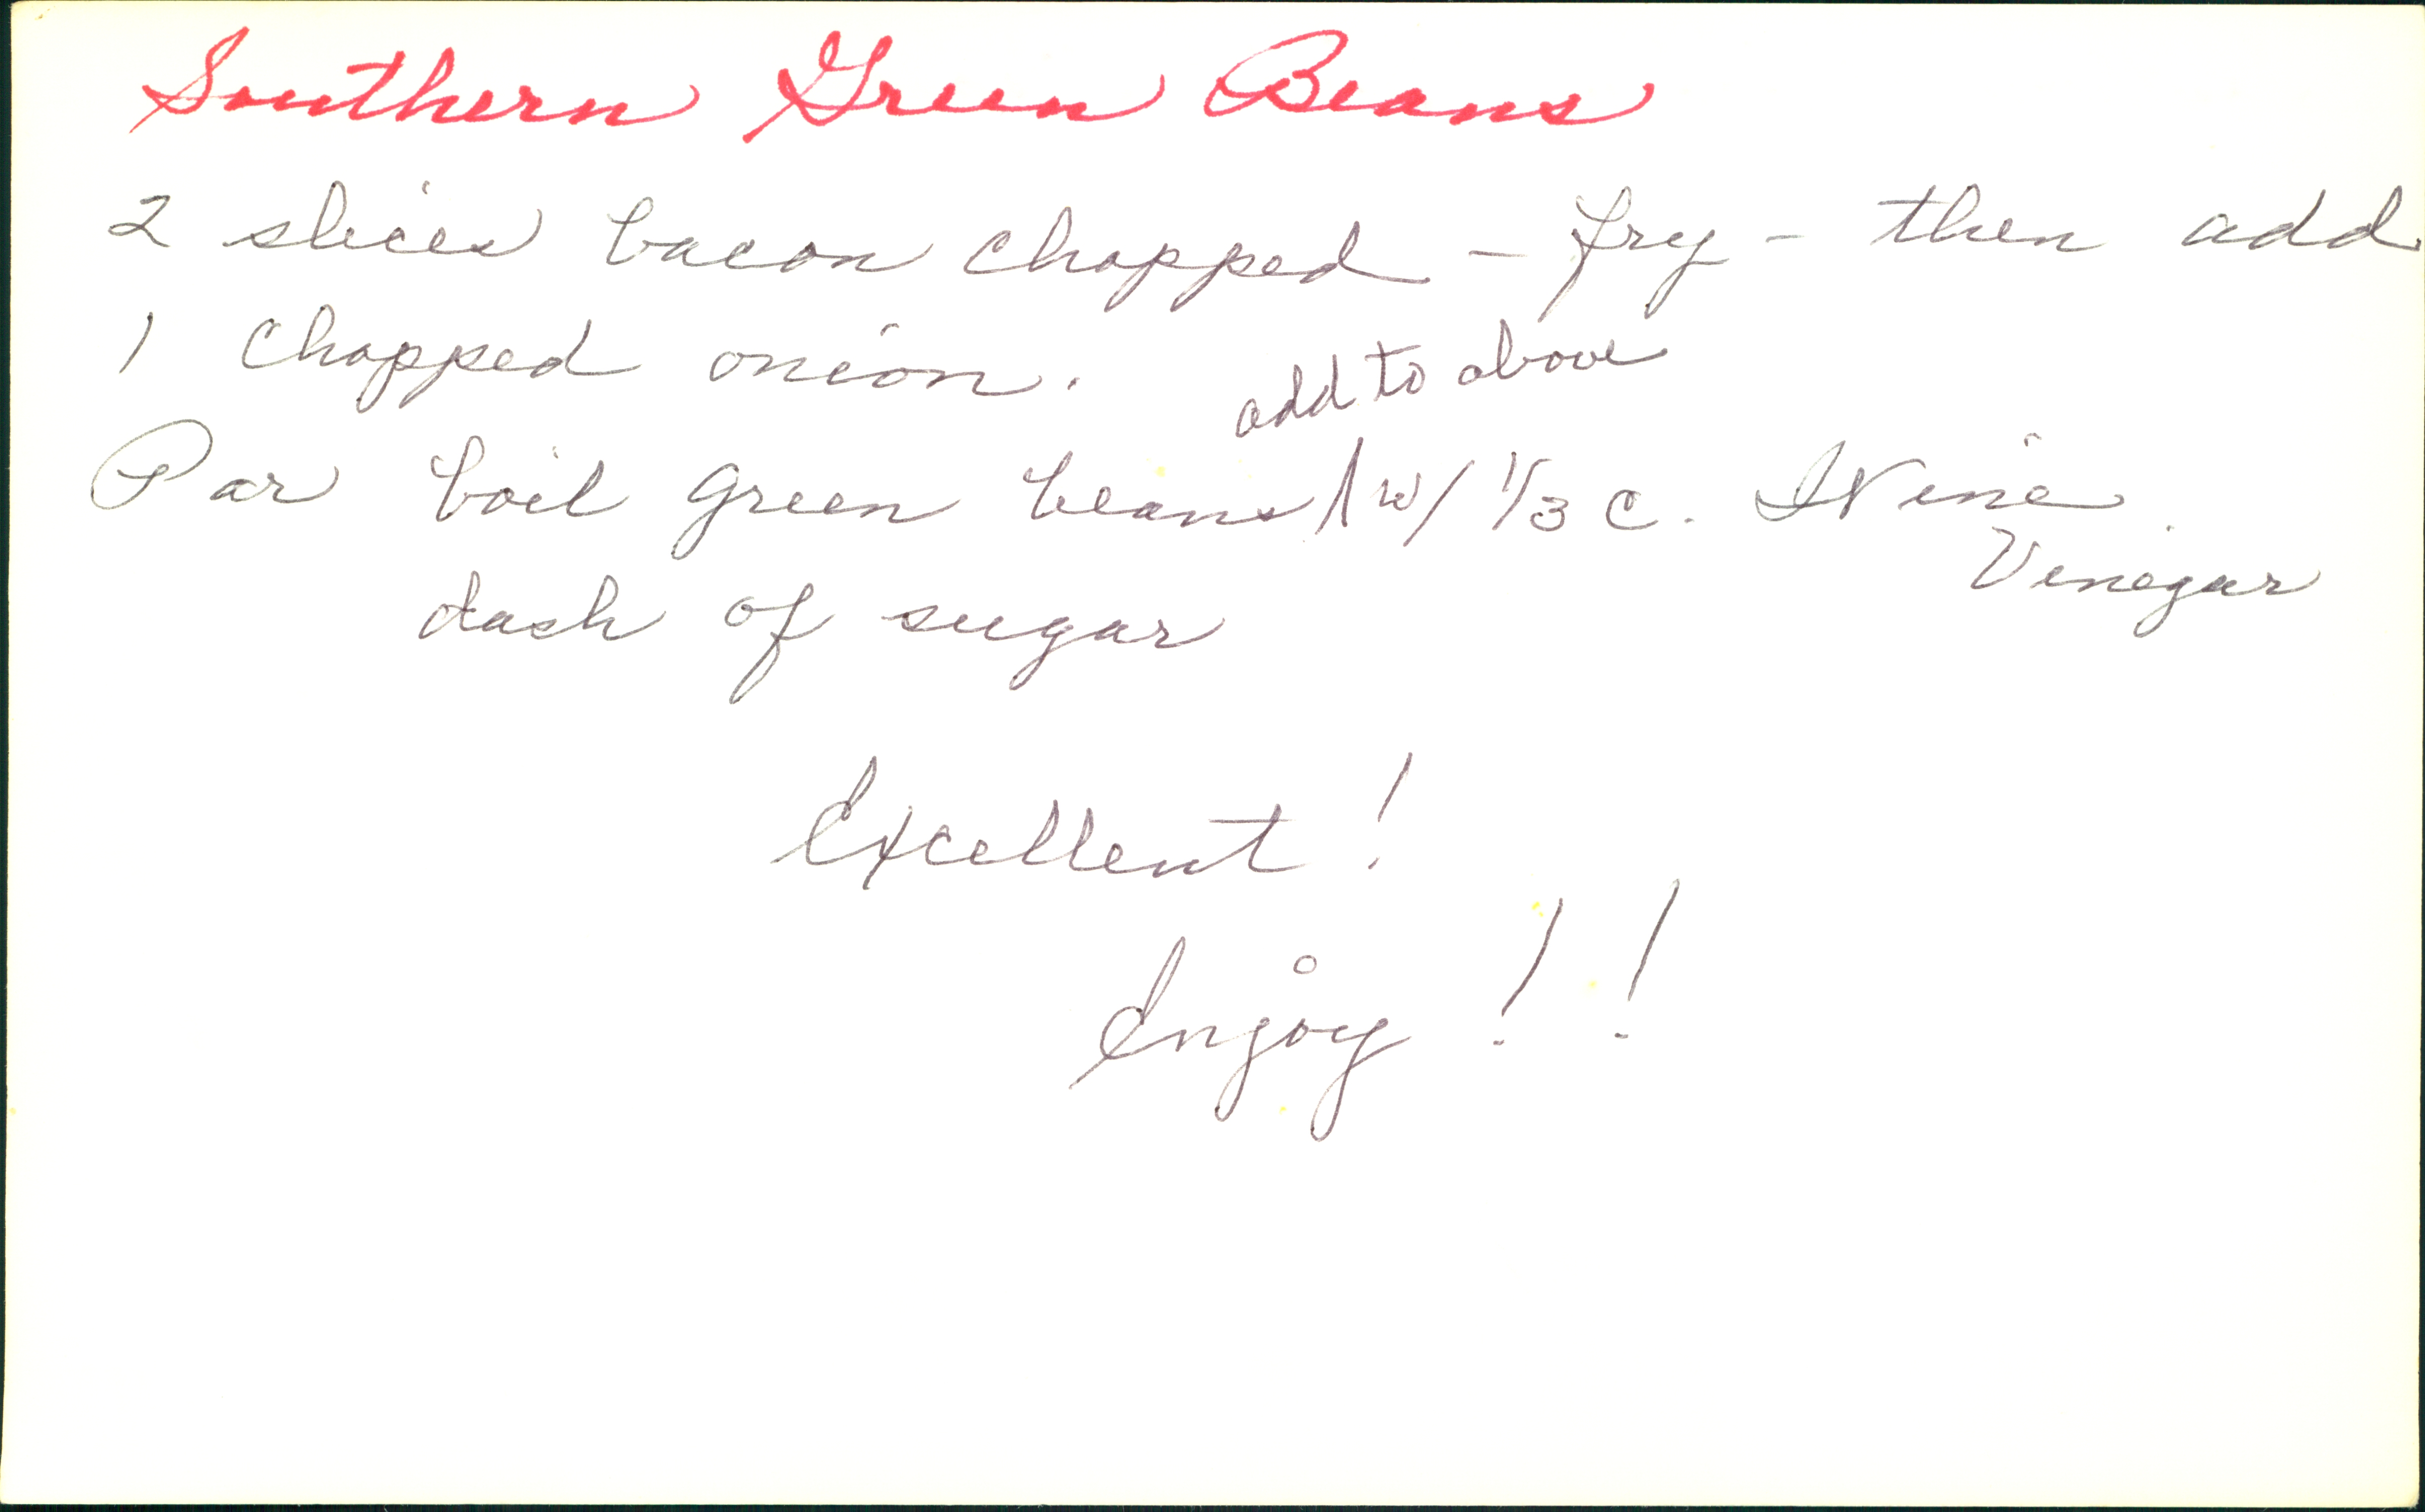 Southern Green Beans
2 slices bacon chopped - fry - then add
1 chopped onion.
add to above
Par boil green beans / w/ 1/3 c. Wine
Vinegar
dash of sugar
Excellent!
Enjoy!!